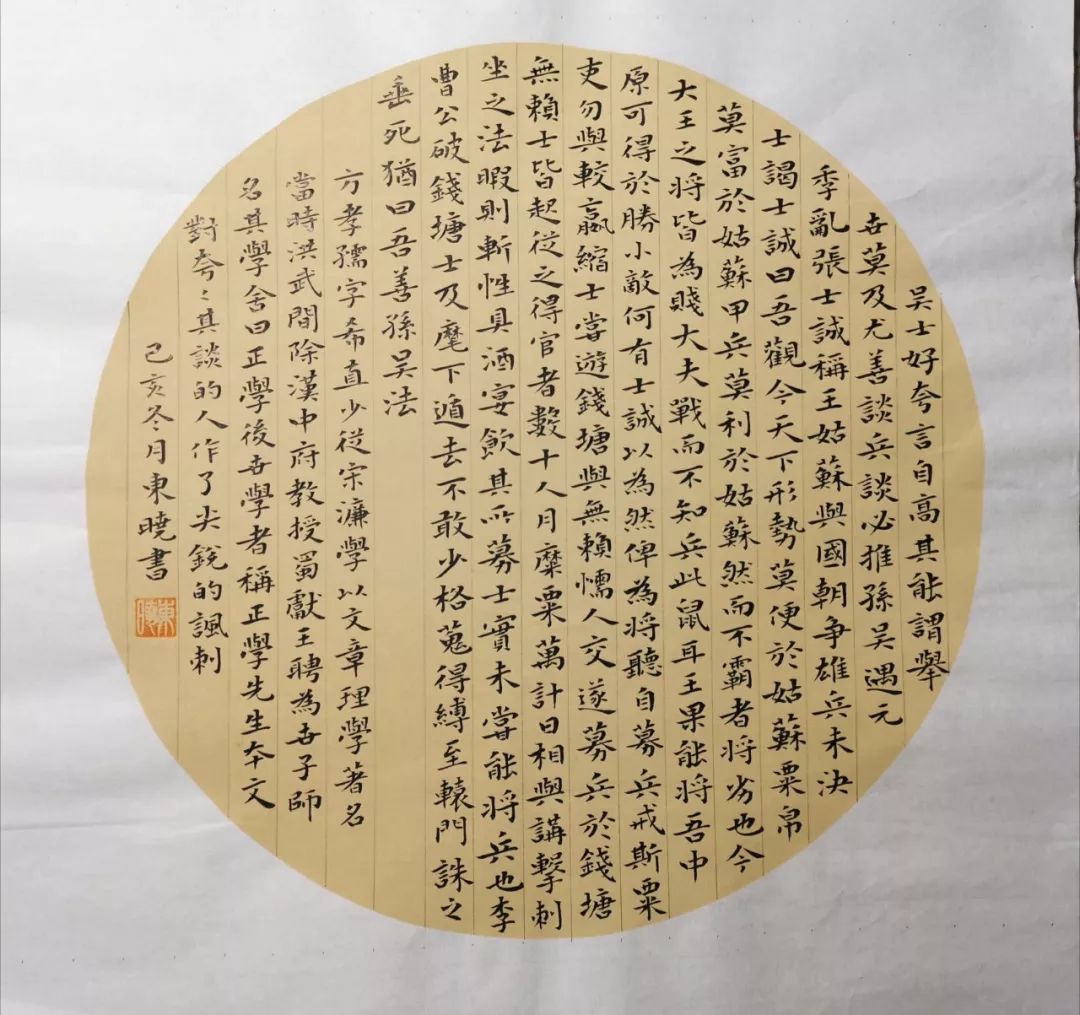 吳士好夸言自高其能謂舉
世莫及尤善談兵談必推孫吳遇元
季亂張士誠稱王姑蘇與國朝争雄兵未決
士謁士誠曰吾觀今天下形勢莫便於姑蘇粟帛
莫富於姑蘇甲兵莫利於姑蘇然而不霸者将劣也今
大王之将皆為賤大夫戰而不知兵此鼠耳王果能将吾中
原可得於勝小敵何有士誠以為然俾為将聽自募兵戒斯粟
吏勿與較贏縮士嘗遊錢塘與無賴懦人交遂募兵於錢塘
無賴士皆起從之得官者數十人月糜粟萬計日相與講擊刺
坐之法暇則斬性具酒宴飲其所募士實未嘗能将兵也李
曹公破錢塘士及麾下遁去不敢少格蒐得縛至轅門誅之
垂死猶曰吾善孫吳法
方孝孺字希直少從宋濂學以文章理學著名
當時洪武間除漢中府教授蜀獻王聘為世子師
名其學舍曰正學後世學者稱正學先生本文
對夸々其談的人作了尖銳的諷刺
己亥冬月東曉書
東曉